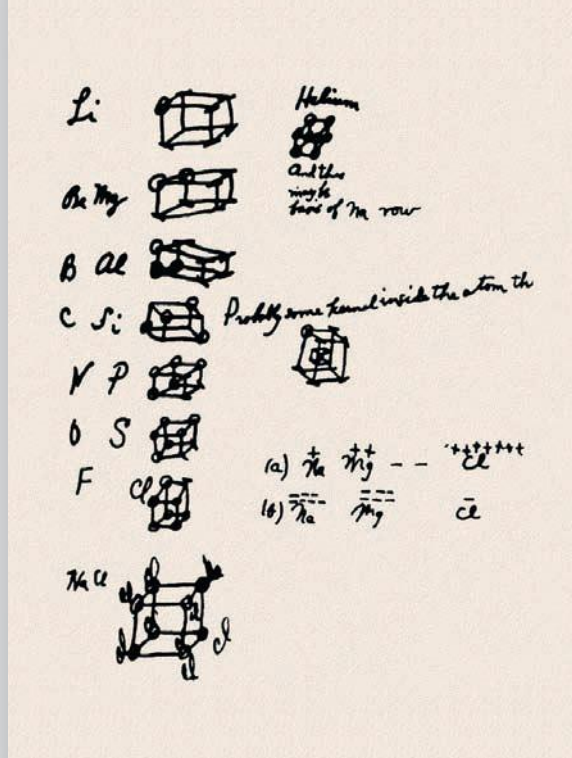 Li
Helium
And this
may be
basis of Na row
Be Mg
B Al
C Si
Probably some kernel inside the atom th
N P
O S
F Cl
(a) Na+ Mg++ - - Cl+++++++
(b) Na Mg Cl-
Na Cl
Na
Cl
Cl